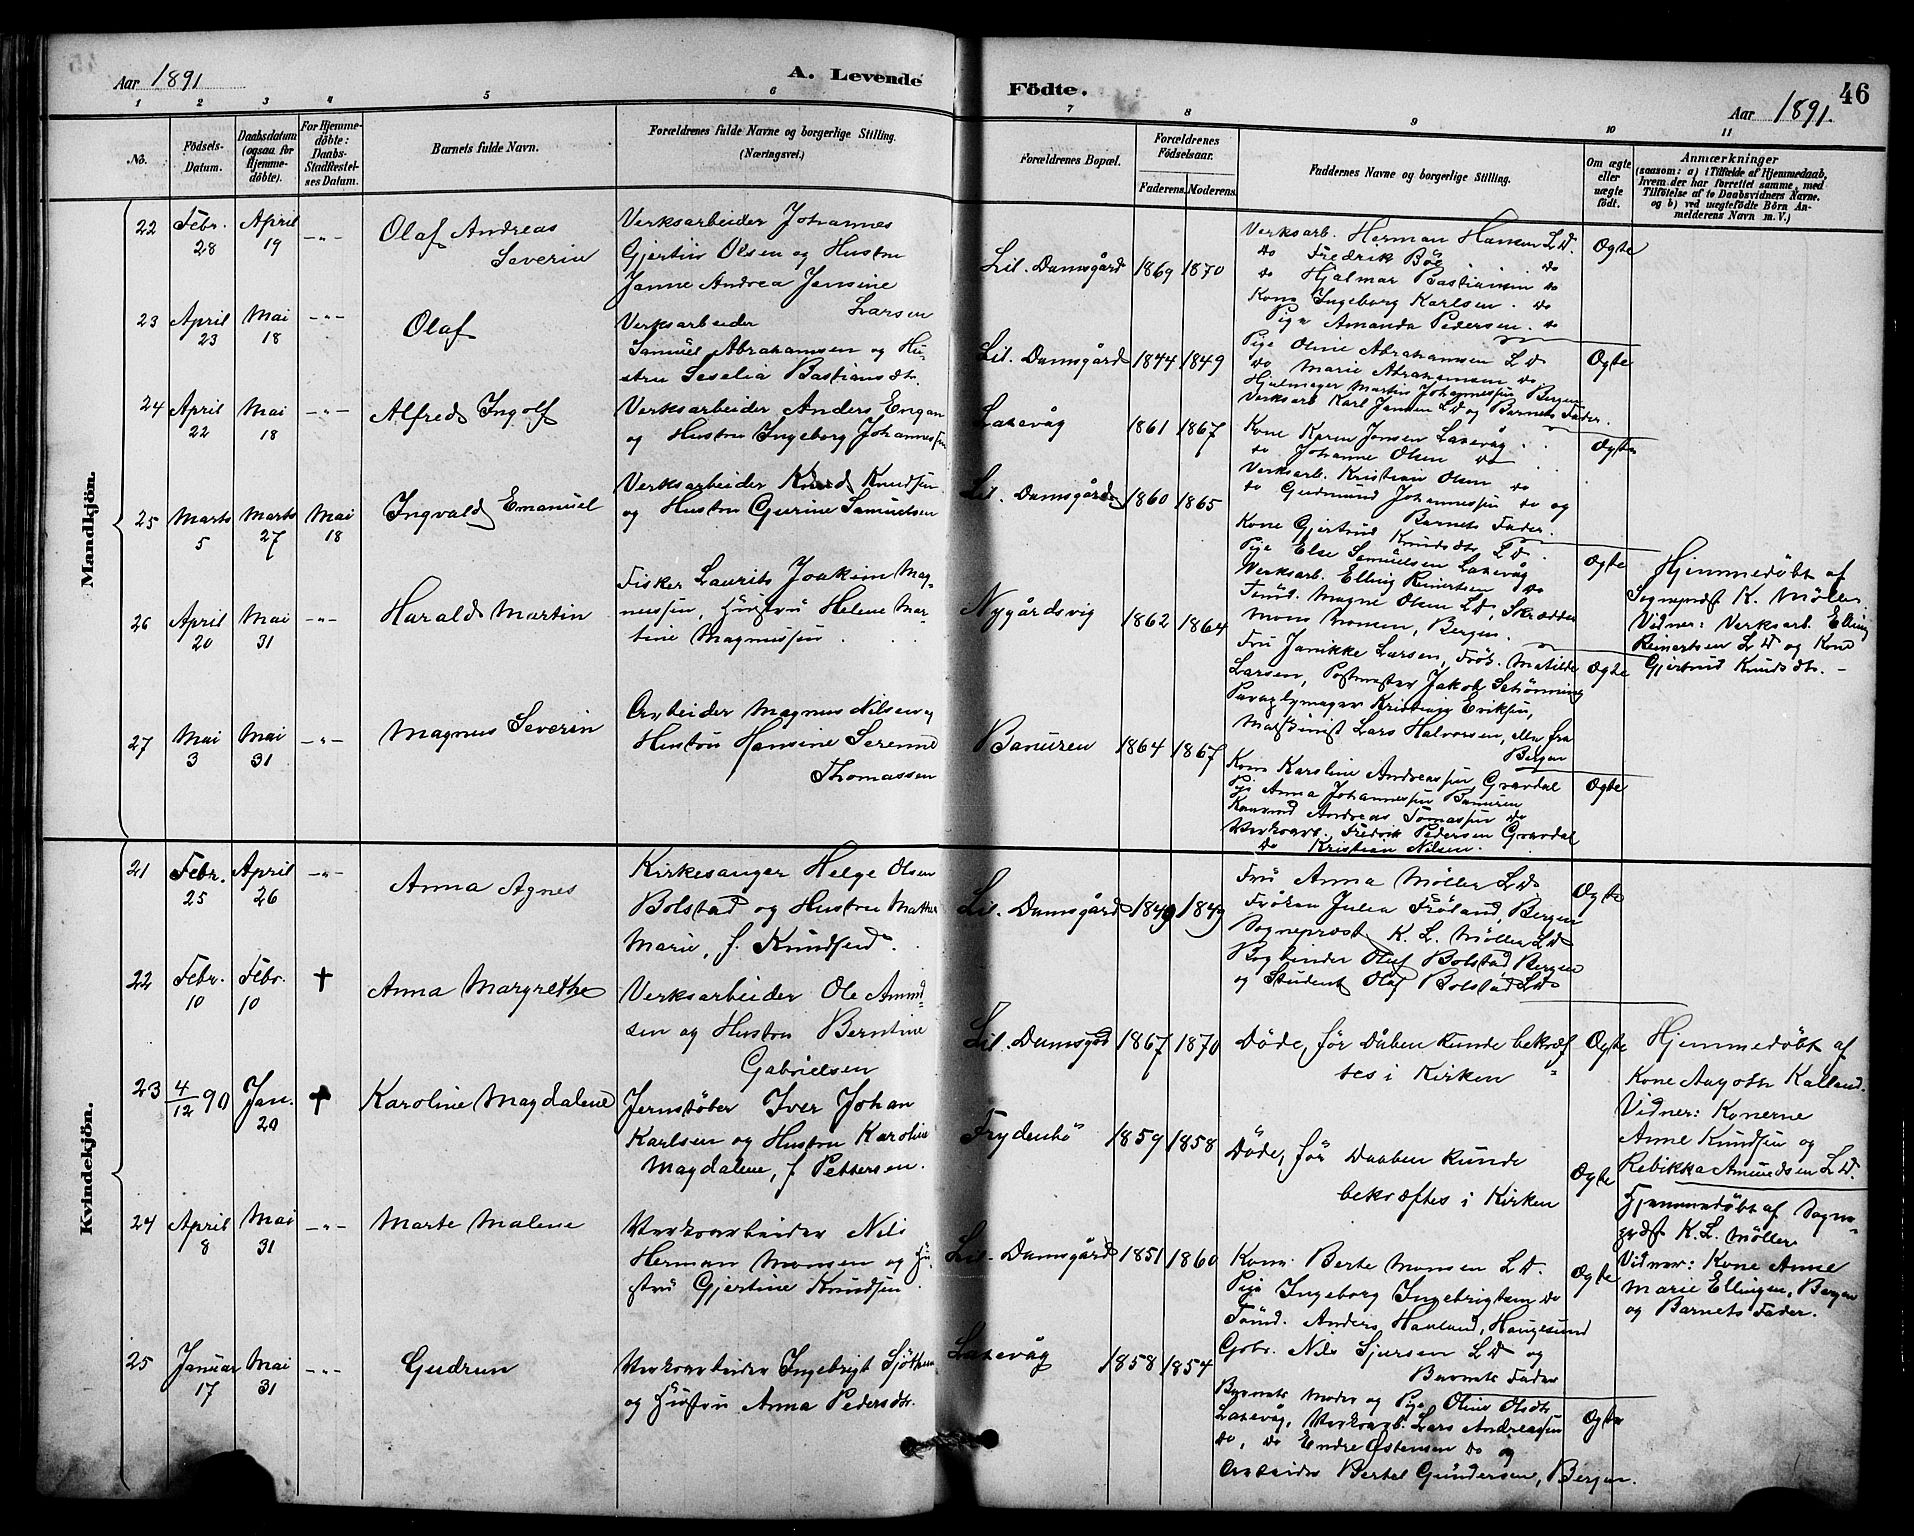 Aar 1891
A. Levende
Födte.
46
Aar 1891.
1 2 3 4 5 6 7 8 9 10 11
No.
Födsels-Datum.
Daabsdatum (ogsaa for Hjemme-döbte).
For Hjemme-döbte: Daabs-Stadfæstel-ses Datum.
Barnets fulde Navn.
Forældrenes fulde Navne og borgerlige Stilling.
(Næringsvei.)
Forældrenes Bopæl.
Forældrenes Födselsaar.
Faderens. Moderens.
Faddernes Navne og borgerlige Stilling.
Om ægte eller uægte födt.
Anmærkninger
(saasom: a) i Tilfælde af Hjemmedaab,
hvem der har forrettet samme, med
Tilföielse af to Daabsvidners Navne.
og b) ved uægtefödte Börn An-
melderens Navn m. V.)
Mandkjön.
22 Febr. 28 April 19 -"- Olaf Andreas Severin
Verksarbeider Johannes
Gjertin Olsen og Hustru
Janne Andrea Jensine
Larsen
Lil. Damsgård 1869 1870
Verksarb. Herman Hansen L D.
do Fredrik Böe do
do Hjalmar Bastiansen do
Kone Ingeborg Karlsen. do
Pige Amanda Pedersen. do
Ogte
23 April 23 Mai 18 -"- Olaf
Verksarbeider
Samuel Abrahamsen og Hu-
stru Seselia Bastiansdtr.
Lil. Damsgård 1844 1849
Pige Oline Abrahamsen L D
do Marie Abrahamsen do
Hjulmager Martin Johannessen Bergen
Verksarb Karl Jansen L D og Barnets Fader.
Ogte
24 April 22 Mai 18 -"- Alfred Ingolf
Verksarbeider Anders Engan
og Hustru Ingeborg Johannessen
Laxevåg 1861 1867
Kone Karen Jensen Laxevåg
do Johanne Olsen do
Verksarb. Kristian Olsen do
do Gudmund Johannessen do og
Barnets Fader.
Ogte
25 Marts 5 Marts 27 Mai 18 Ingvald Emanuel
Verksarbeider Knud Knudsen
og Hustru Gurine Samuelsen
Lil. Damsgård 1860 1865
Kone Gjertrud Knudsdtr. L D.
Pige Else Samuelsen Laxevåg
Verksarb. Elling Reinertsen do
Tømd. Magne Olsen L D, Skrædder
Mons Monsen, Bergen.
Ogte
Hjemmedöbt af
Sognepræst K. Möller.
Vidner: Verksarb. Elling
Reinertsen L D og Kone
Gjertrud Knudsdtr. -
26 April 20 Mai 31 -"- Harald Martin
Fisker Laurits Joakim Mag-
nussen, Hustru Helene Mar-
tine Magnussen
Nygårdsvig 1862 1864
Fru Janikke Larsen, Frök. Matilde
Larsen, Postmester Jakob Schönning
Paraplymager Kristian Eriksen,
Maskinist Lars Halvorsen, alle fra
Bergen
Ogte
27 Mai 3 Mai 31 -"- Magnus Severin
Arbeider Magnus Nilsen og
Hustru Hansine Serenne
Thomassen
Banuren 1864 1867
Kone Karoline Andreassen, Gravdal
Pige Anna Johannessen Banuren
Andreas Tomassen do
Verksarb. Fredrik Pedersen Gravdal
do Kristian Nilsen.
Ogte
Kvindekjön.
21 Febr. 25 April 26 -"- Anna Agnes
Kirkesanger Helge Olsen
Bolstad og Hustru Marthe
Marie, f. Knudsen.
Lil. Damsgård 1849 1849
Fru Anna Möller L D
Fröken Julia Fröland, Bergen
Sognepræst K. L. Möller L D
Bogbinder Oluf Bolstad, Bergen
og Student Olaf Bolstad L D.
Ogte
22 Febr. 10 Febr. 10 † Anna Margrethe
Verksarbeider Ole Amund-
sen og Hustru Berntine
Gabrielsen
Lil. Damsgd 1867 1870
Döde, för Dåben kunde bekræf-
tes i Kirken
Ogte
Hjemmedöbt af
Kone Aagoth Kalland.
Vidner: Konerne
Anne Knudsen og
Rebikka Amundsen L D.
23 4/12 90 Jan. 20 † Karoline Magdalene
Jernstöber Iver Johan
Karlsen og Hustru Karoline
Magdalene, f. Pettersen.
Frydenbö 1859 1858
Döde, för Daaben kunde
bekræftes i Kirken
Ogte
Hjemmedöbt af Sogne-
præst K. L. Möller
Vidner: Kone Anne
Marie Ellingsen, Bergen
og Barnets Fader.
24 April 8 Mai 31 -"- Marte Malene
Verksarbeider Nils
Herman Monsen og Hu-
stru Gjertine Knudsen
Lil. Damsgård 1851 1860
Kone Berte Monsen L D.
Pige Ingeborg Ingebrigtsen do
Tømd. Anders Hauland, Haugesund
Gbr. Nils Sjursen L D og
Barnets Fader
Ogte
25 Januar 17 Mai 31 -"- Gudrun
Verksarbeider Ingebrigt
og Hustru Anna Pedersdtr.
Laxevåg 1858 1854
Barnets Moder og Pige Oline Olsdtr
Laxevåg, Verksarb. Lars Andreassen
do, do Endre Östensen do og
Arbeider Bertel Gundersen, Bergen.
Ogte